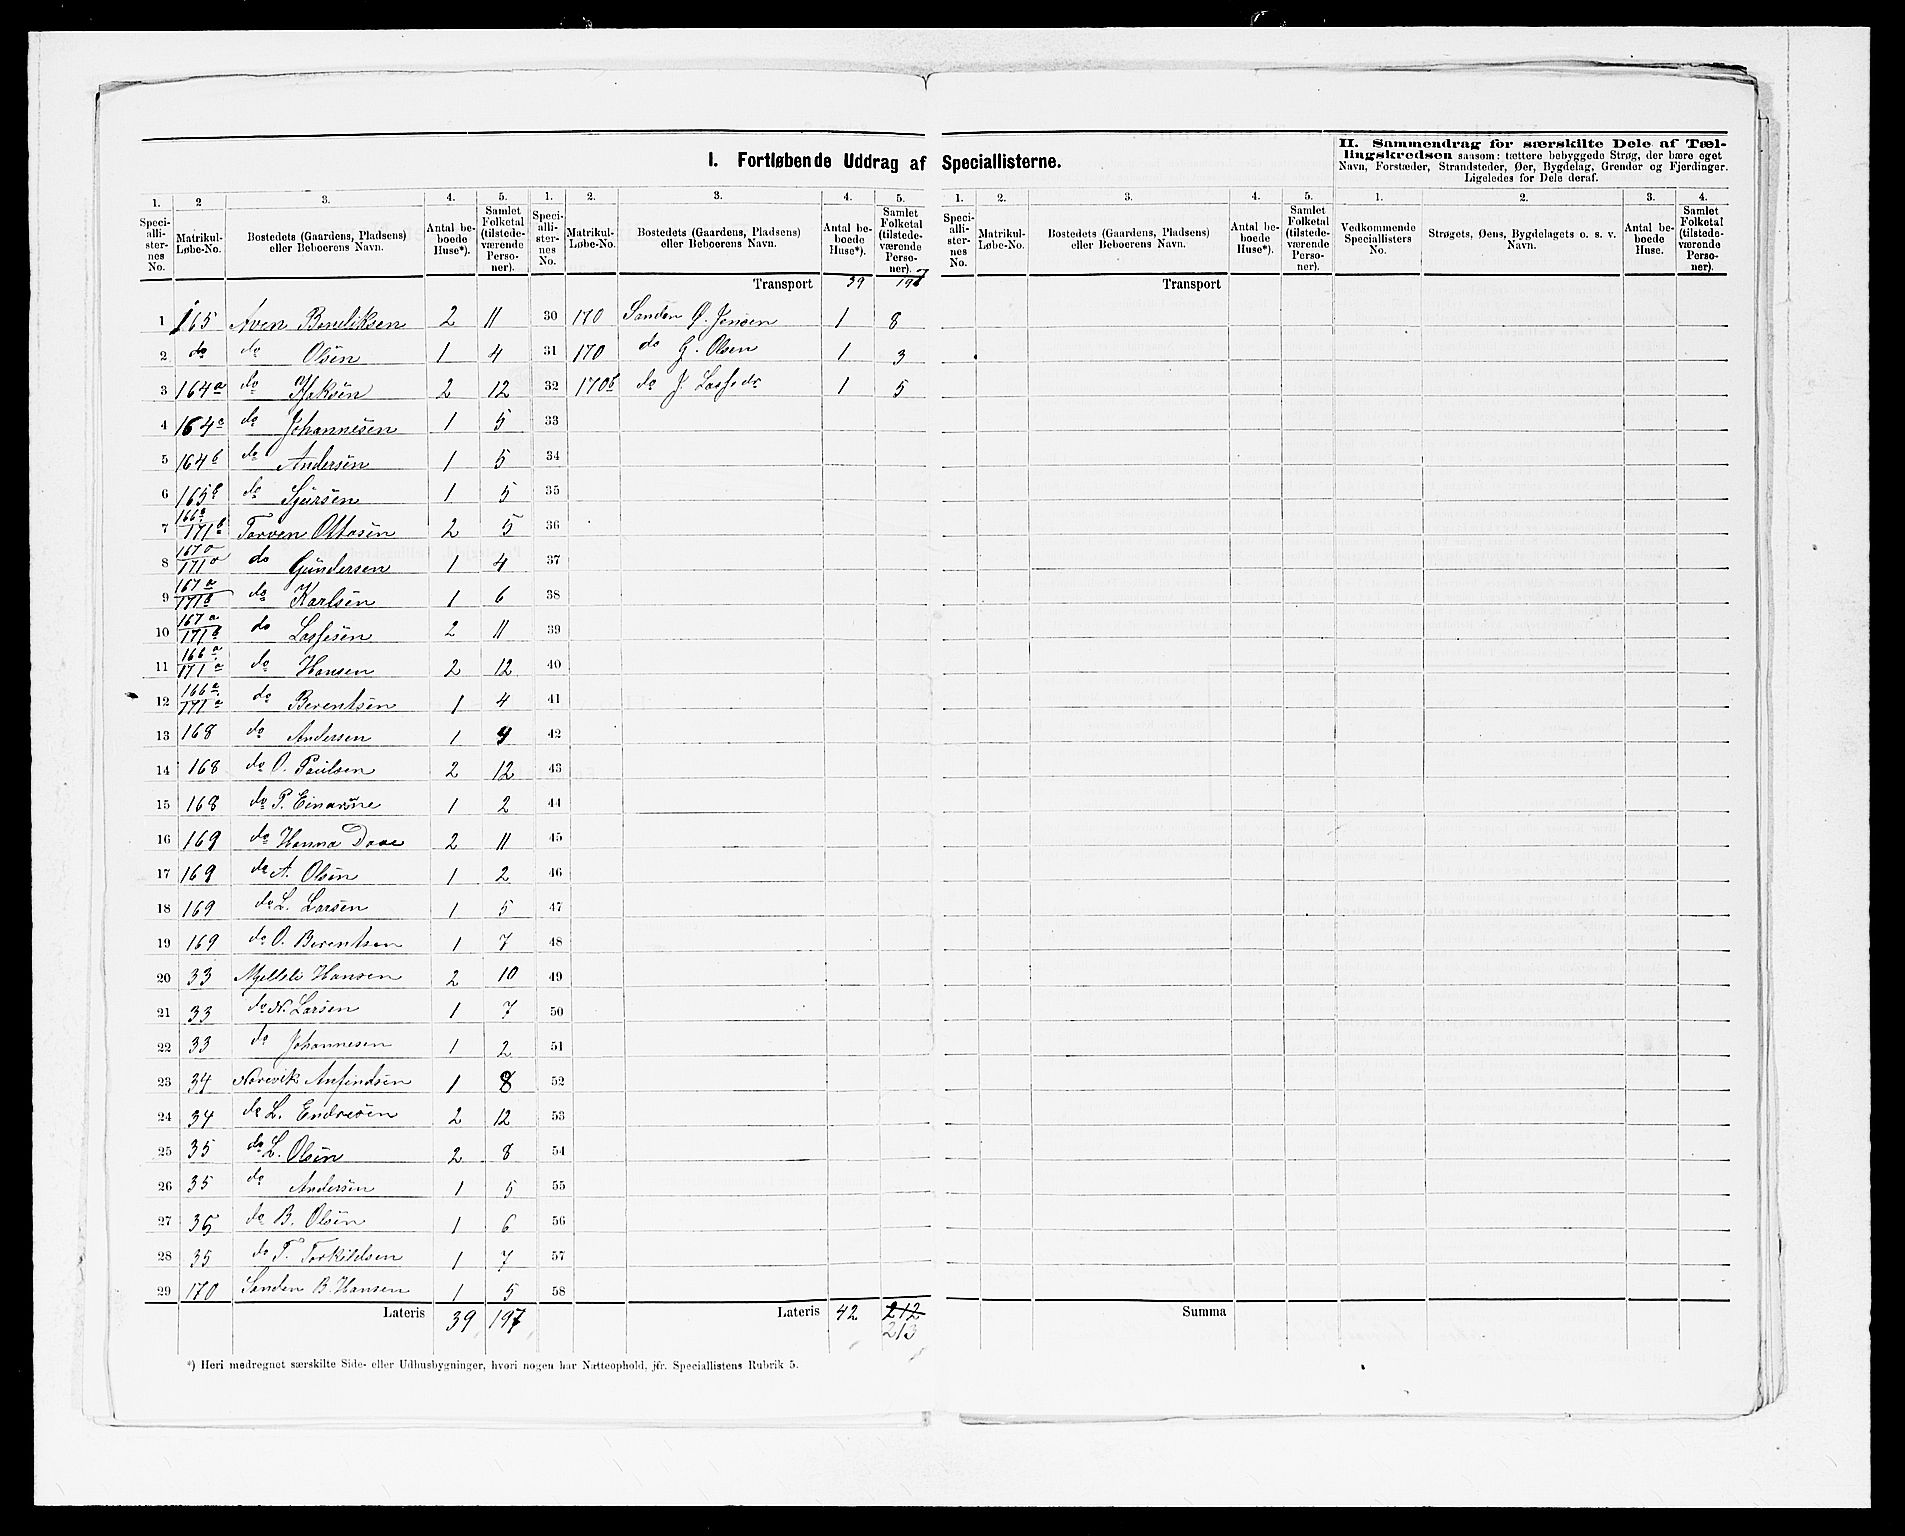 I. Fortløbende Uddrag af Speciallisterne.
II. Sammendrag for særskilte Dele af Tæl-
lingskredsen saasom: tættere bebyggede Strøg, der bære eget
Navn, Forstæder, Strandsteder, Øer, Bygdelag, Grender og Fjerdinger.
Ligeledes for Dele deraf.
1. 2 3. 4. 5. 1. 2. 3. 4. 5. 1. 2. 3. 4. 5. 1. 2. 3. 4.
Speciallister-nes No. Matrikul-Løbe-No. Bostedets (Gaardens, Pladsens) eller Beboerens Navn. Antal beboede Huse*). Samlet Folketal (tilstedeværende Personer). Speciallister-nes No. Matrikul-Løbe-No. Bostedets (Gaardens, Pladsens) eller Beboerens Navn. Antal beboede Huse*). Samlet Folketal (tilstedeværende Personer).
Speciallister-nes No. Matrikul-Løbe-No. Bostedets (Gaardens, Pladsens) eller Beboerens Navn. Antal beboede Huse*). Samlet Folketal (tilstedeværende Personer). Vedkommende Speciallisters No. Strøgets, Øens, Bygdelagets o. s. v. Navn. Antal beboede Huse. Samlet Folketal (tilstedeværende Personer).
Transport 39 197 Transport
1 165 Aven Bendiksen 2 11 30 170 Sanden Ø. Jensen 1 8
2 do do Olsen 1 4 31 170 do G. Olsen 1 3
3 164a do 2 12 32 170b do J. Lasse do 1 5
4 164c do Johannesen 1 5 33
5 164b do Andersen 1 5 34
6 165b do Sjursen 1 5 35
7 166a/171b Torven Ottosen 2 5 36
8 167a/171a do Gundersen 1 4 37
9 167a/171b do Karlsen 1 6 38
10 167a/171b do Lassesen 2 11 39
11 166a/171a do Hansen 2 12 40
12 166a/171a do Berentsen 1 4 41
13 168 do Andersen 1 4 42
14 168 do O. Paulsen 2 12 43
15 168 do P. Einarsne 1 2 44
16 169 do Hanna Daae 2 11 45
17 169 do A. Olsen 1 2 46
18 169 do L. Larsen 1 5 47
19 169 do O. Berentsen 1 7 48
20 33 Mjelteli Hansen 2 10 49
21 33 do N. Larsen 1 7 50
22 33 do Johannesen 1 2 51
23 34 Norevik Anfindsen 1 8 52
24 34 do L. Endresen 2 12 53
25 35 do L. Olsen 2 8 54
26 35 do Andersen 1 5 55
27 35 do B. Olsen 1 6 56
28 35 do T. Torkildsen 1 7 57
29 170 Sanden B. Hansen 1 5 58
Lateris 39 197 Lateris 42 212 Summa
213
*) Heri medregnet særskilte Side- eller Udhusbygninger, hvori nogen har Natteophold, jfr. Speciallistens Rubrik 5.